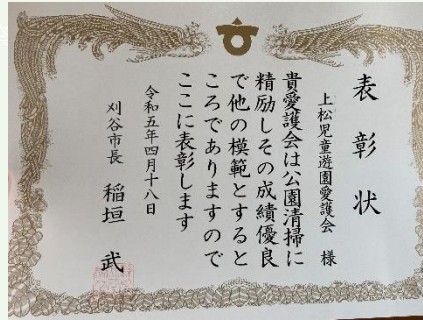 表彰状
上松児童遊園愛護会 様
貴愛護会は公園清掃に
精励しその成績優良
で他の模範とすると
ころでありますので
ここに表彰します
令和五年四月十八日
刈谷市長 稲垣 武